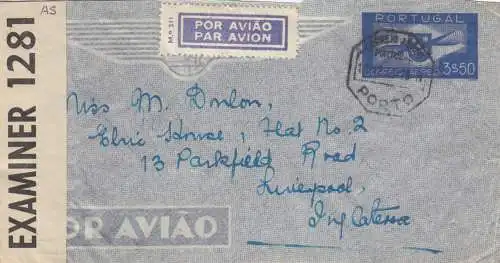 AS
EXAMINER 1281
Mº 211
POR AVIÃO
PAR AVION
PORTUGAL
3$50
PORTO
Miss M.
House, Flat No. 2
13 Parkfield Road
Liverpool,
Inglaterra
POR AVIÃO